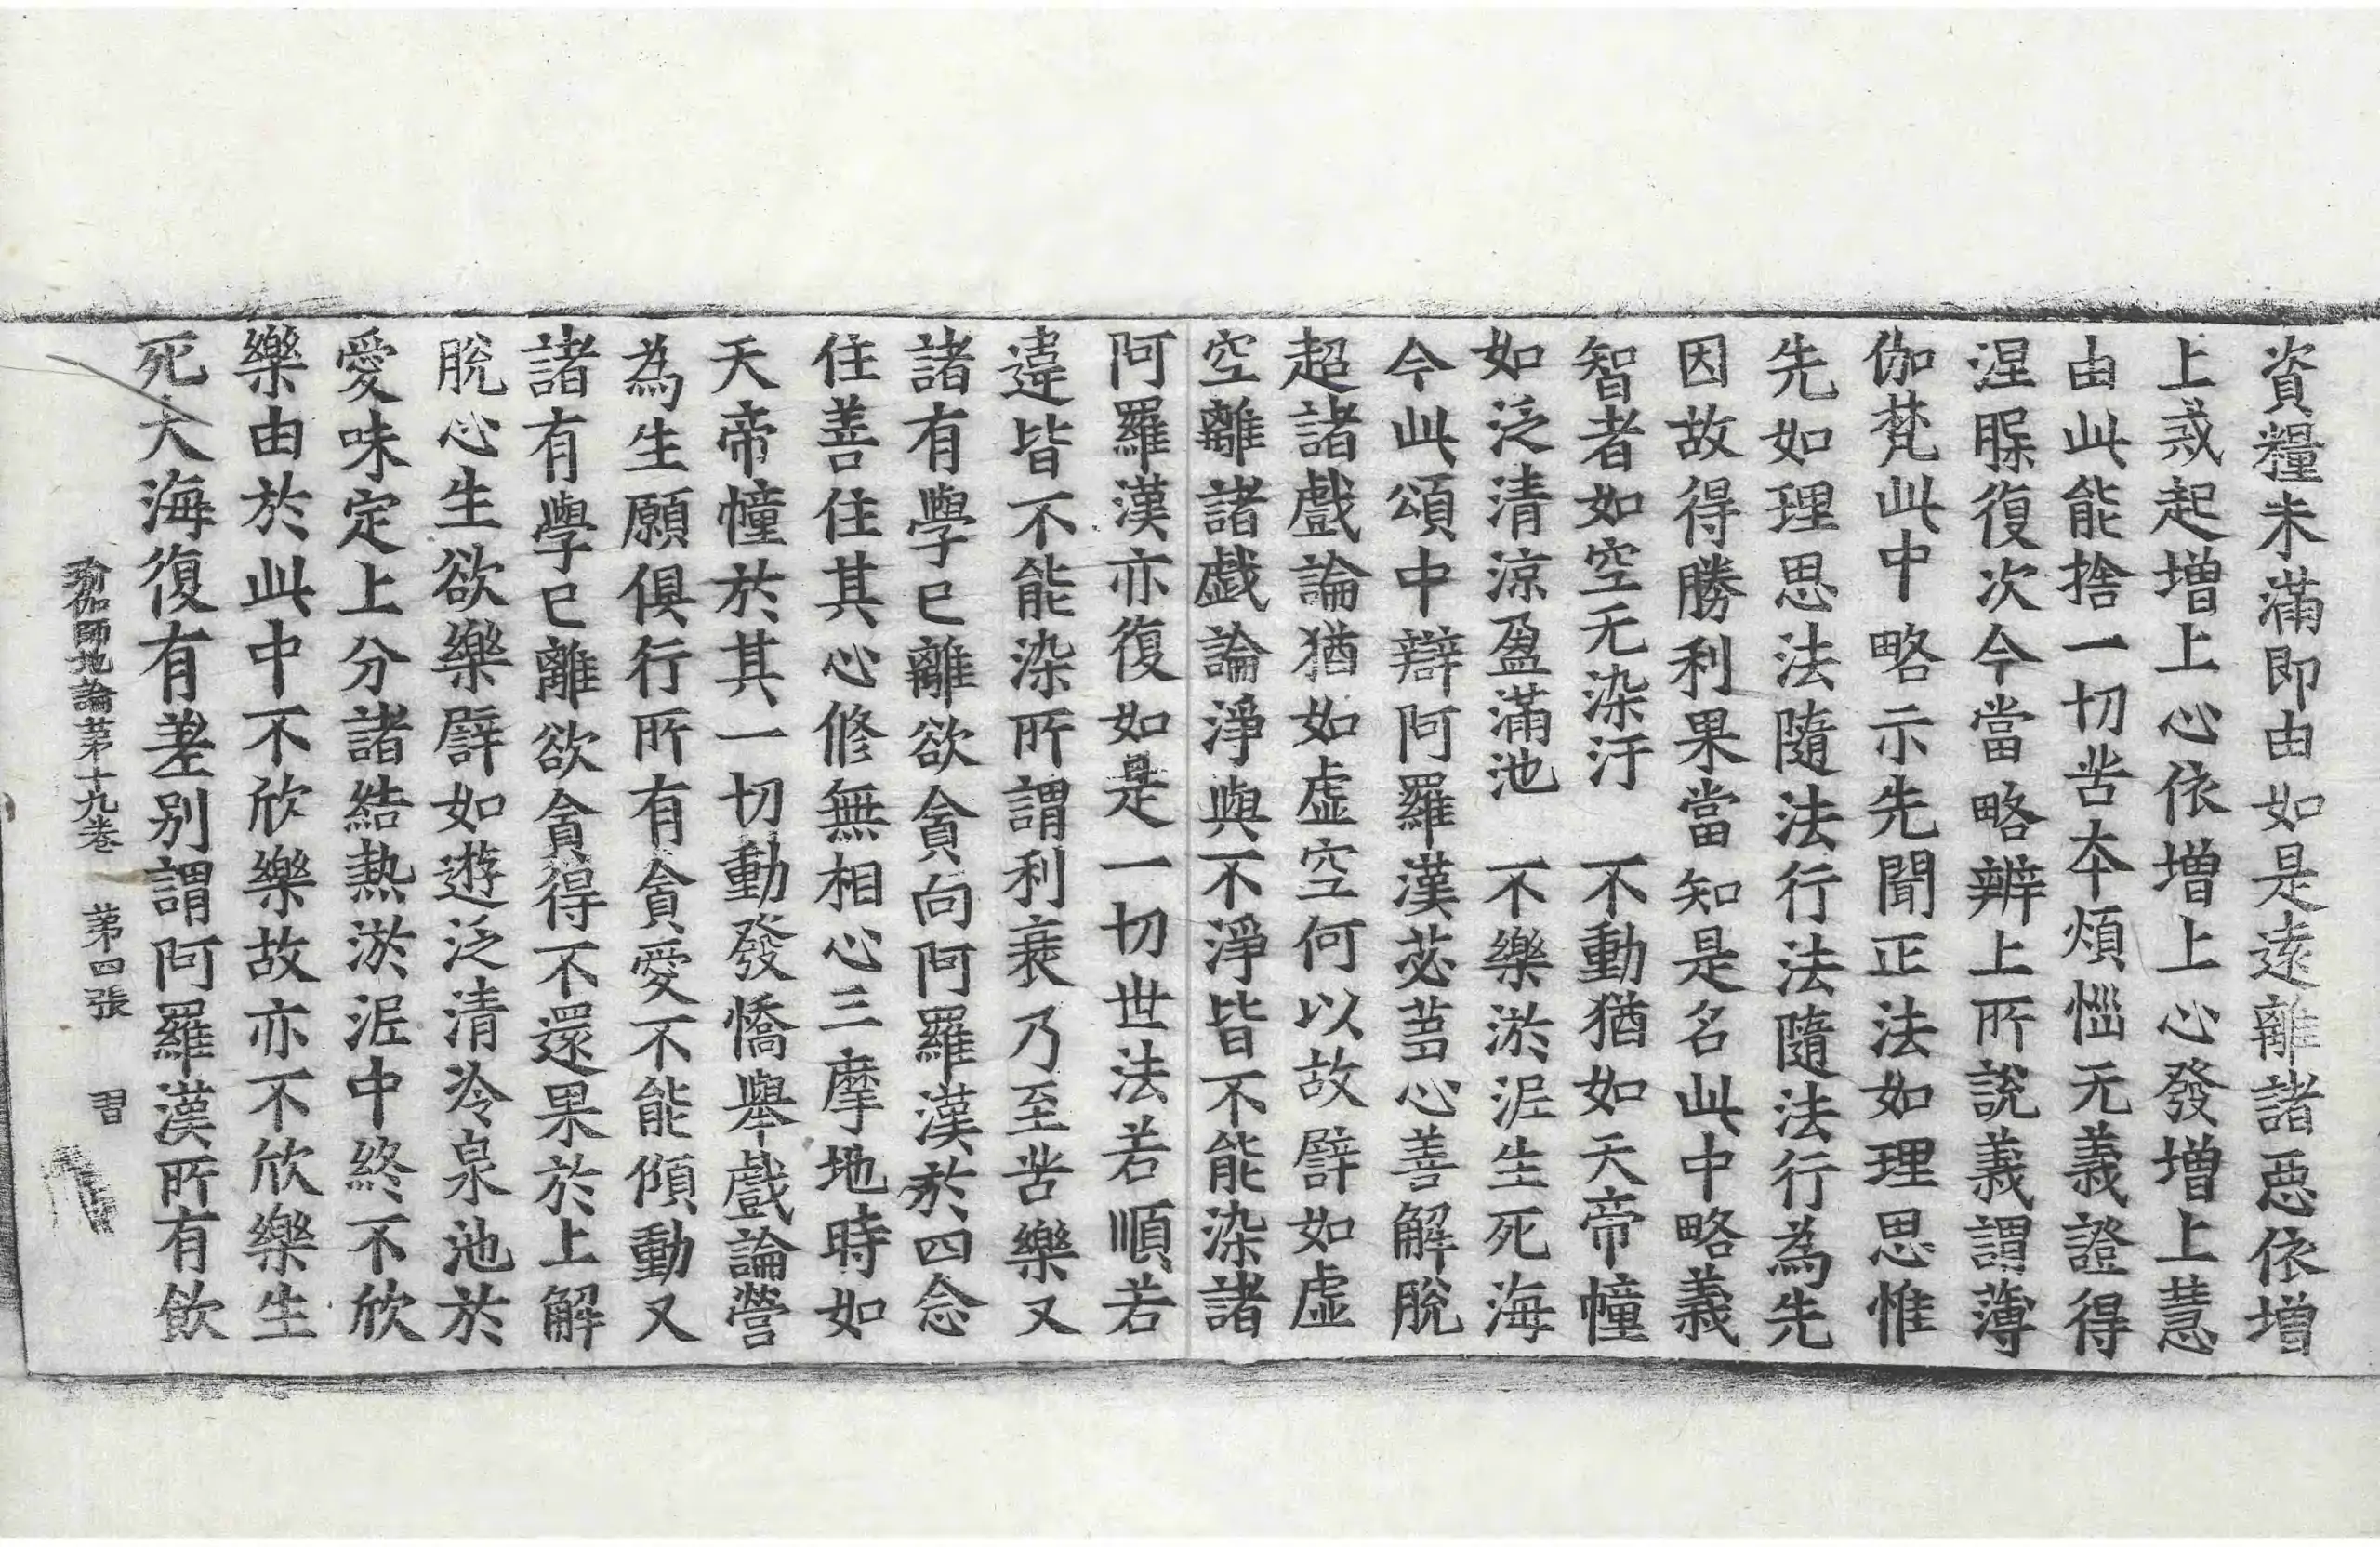 資糧未滿即由如是遠離諸惡依增
上戒起增上心依增上心發增上慧
由此能捨一切苦本煩惱无義證得
涅槃復次今當略辨上所說義謂薄
伽梵此中略示先聞正法如理思惟
先如理思法隨法行法隨法行為先
因故得勝利果當知是名此中略義
智者如空无染汙　不動猶如天帝幢
如泛清涼盈滿池　不樂淤泥生死海
今此頌中辯阿羅漢苾芻心善解脫
超諸戲論猶如虛空何以故譬如虛
空離諸戲論淨與不淨皆不能染諸
阿羅漢亦復如是一切世法若順若
違皆不能染所謂利衰乃至苦樂又
諸有學已離欲貪向阿羅漢於四念
住善住其心修無相心三摩地時如
天帝幢於其一切動發憍舉戲論營
為生願俱行所有貪愛不能傾動又
諸有學已離欲貪得不還果於上解
脫心生欲樂譬如遊泛清泠泉池於
愛味定上分諸結熱淤泥中終不欣
樂由於此中不欣樂故亦不欣樂生
死大海復有差別謂阿羅漢所有飲
瑜伽師地論第十九卷　第四張　習